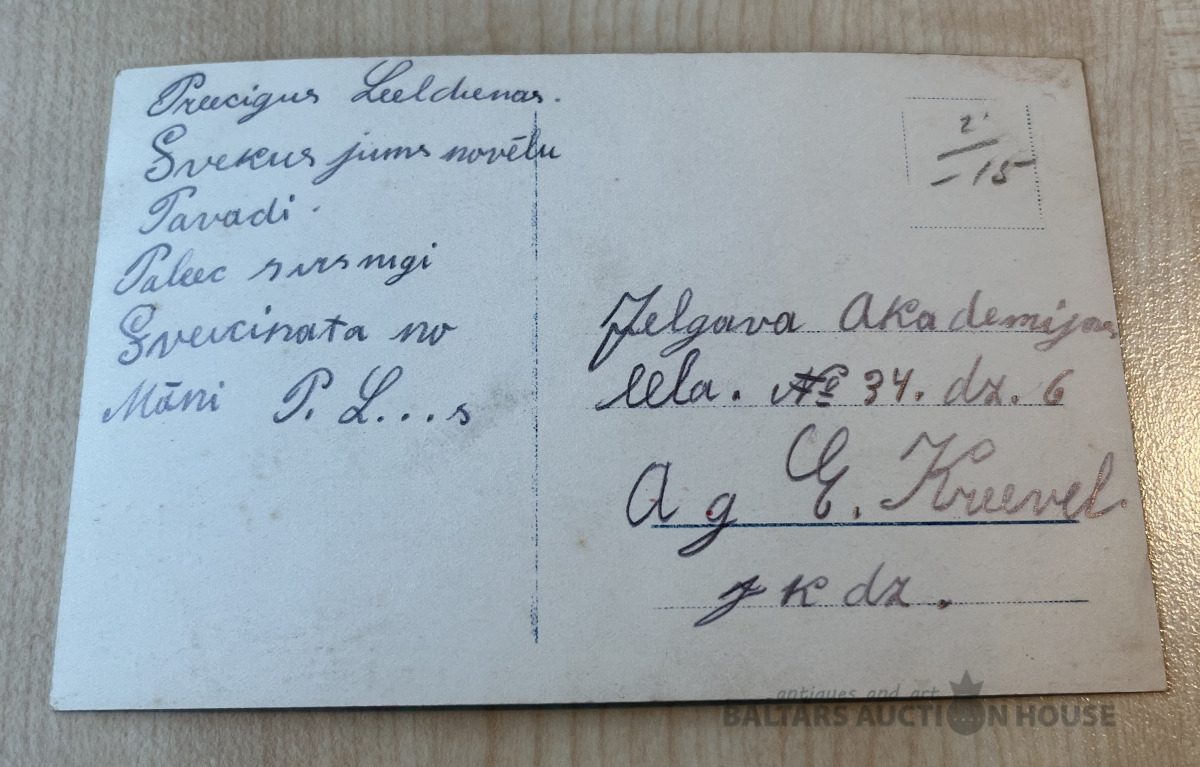 Preecigus Leeldienas.
Svekus jums novēlu
Tavadi.
Paleec sirsnigi
Sveicinata no
Māni P. L...s
2'
— 15
Jelgava Akademijas
lela. № 34. dz. 6
A g E. Kreevel.
jkdz.
antiques and art
BALTARS AUCTION HOUSE